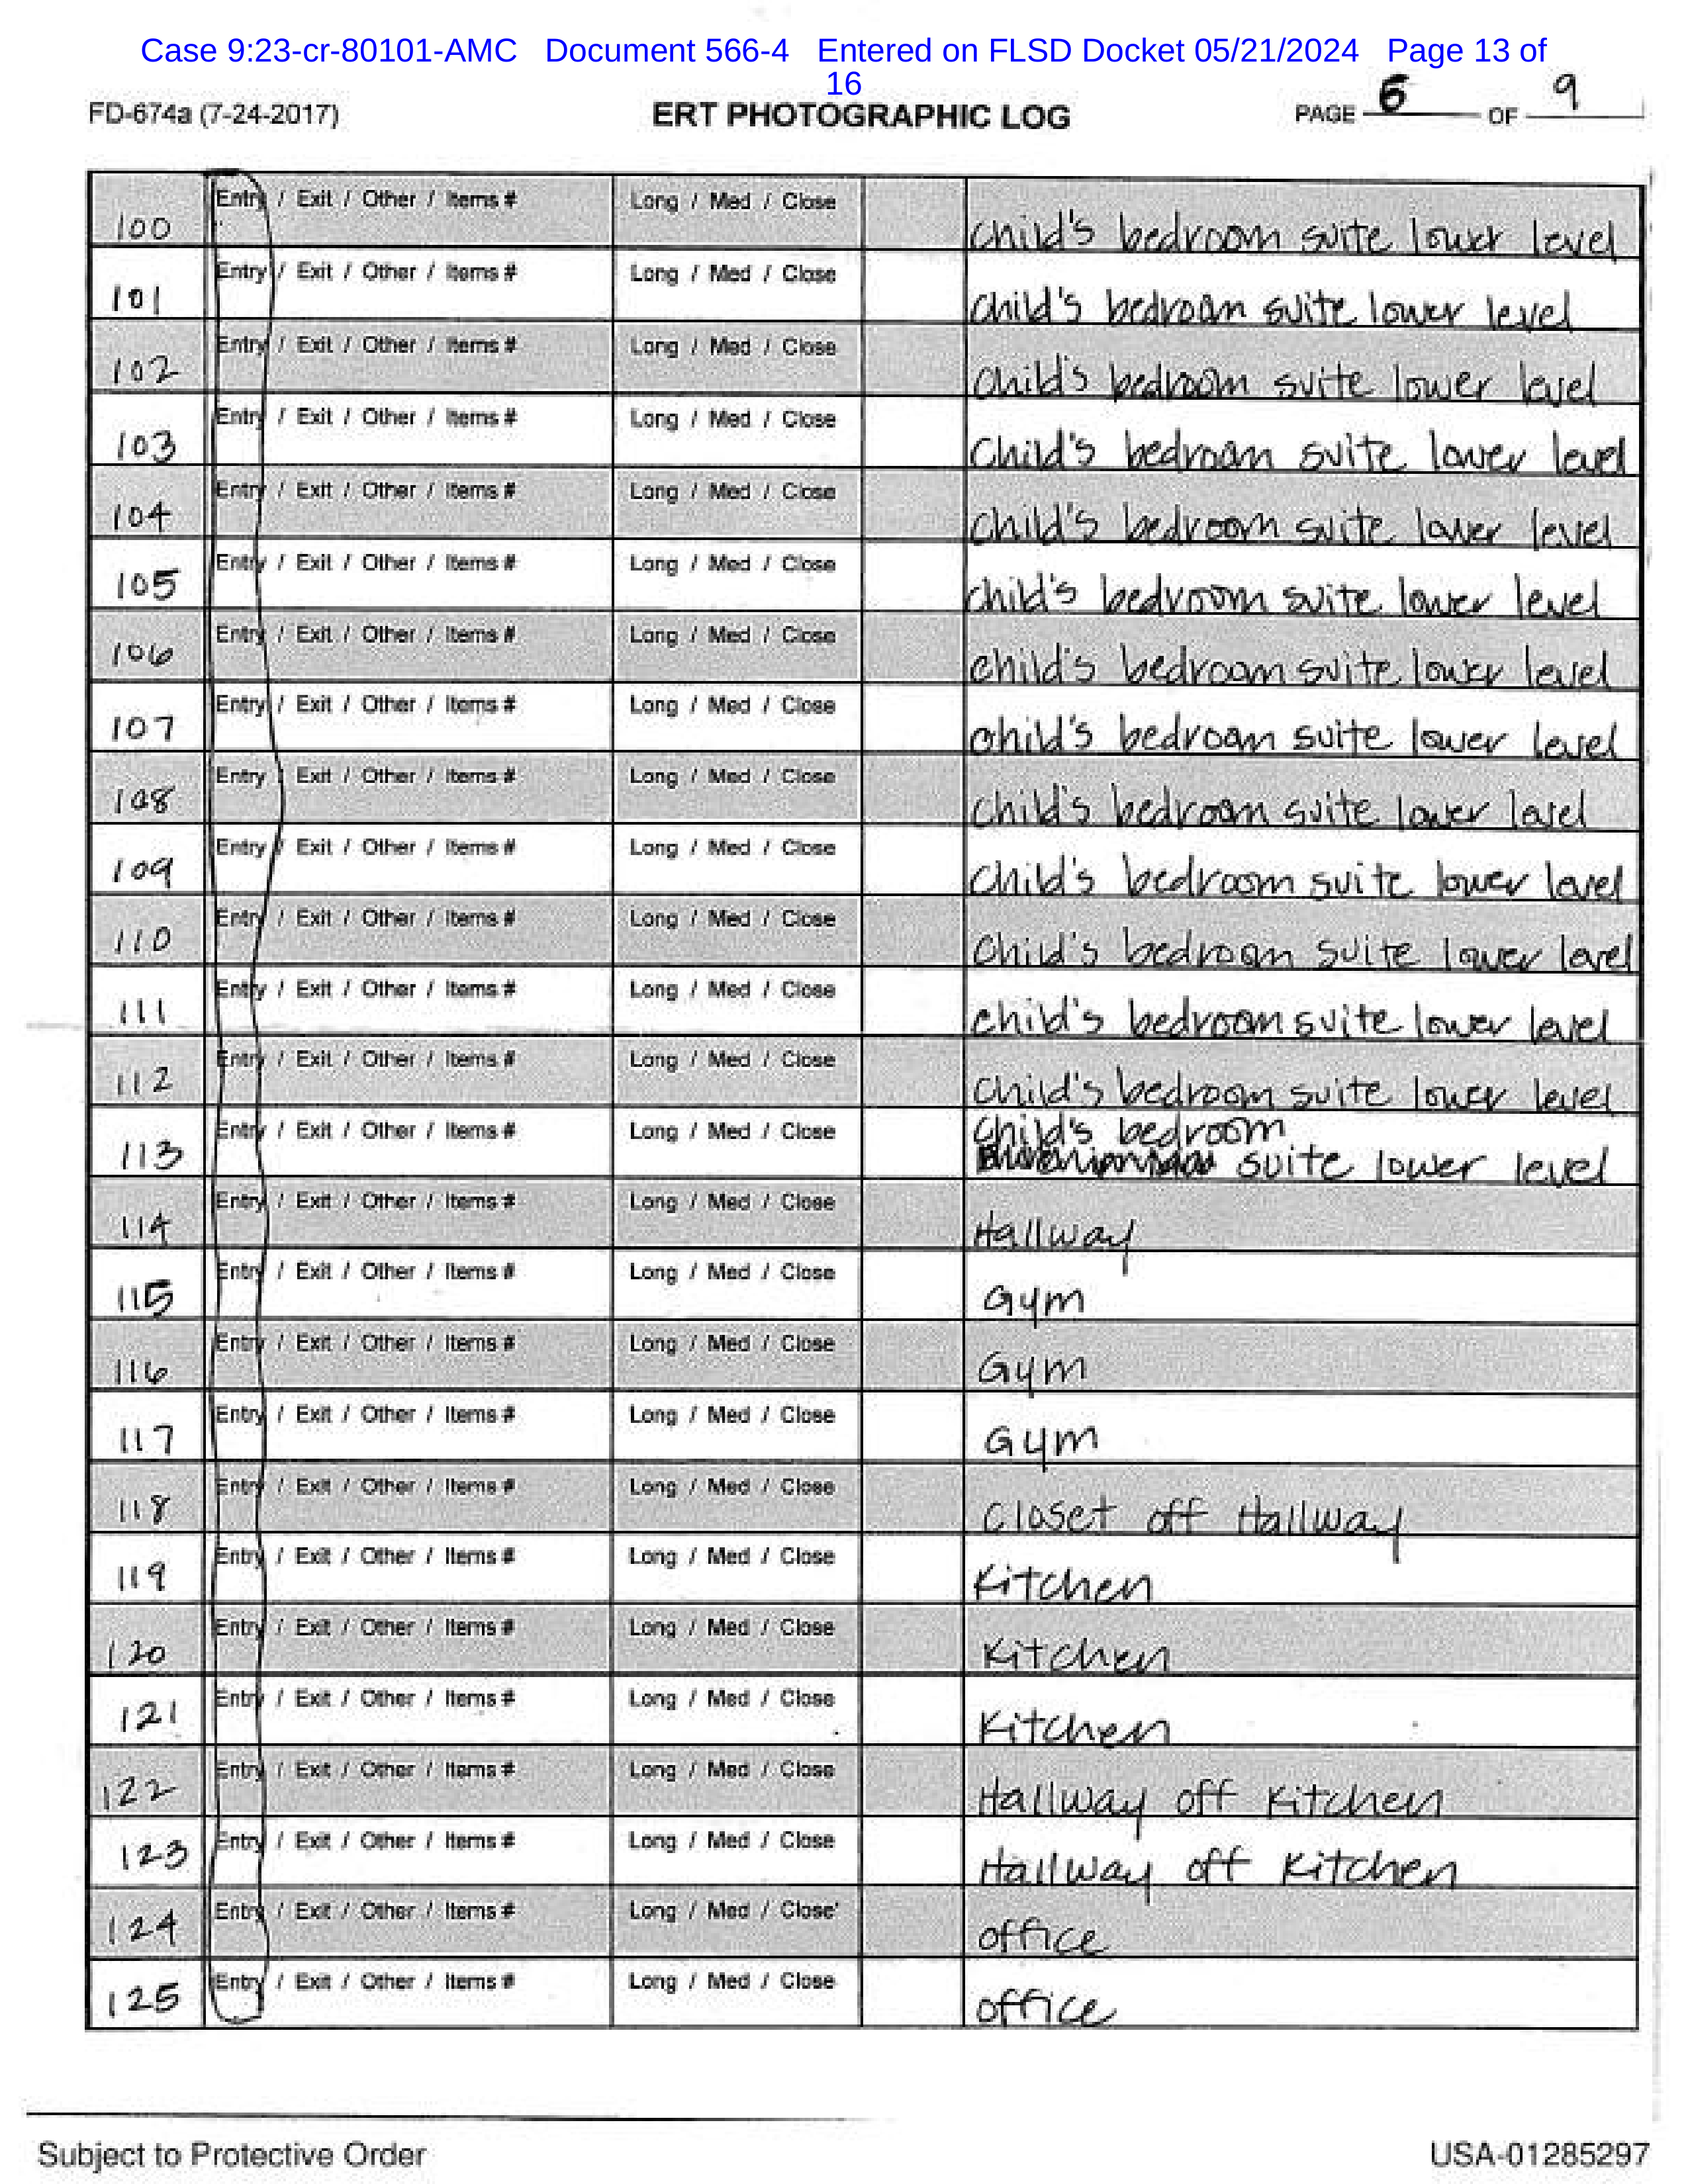 Case 9:23-cr-80101-AMC Document 566-4 Entered on FLSD Docket 05/21/2024 Page 13 of
16
FD-674a (7-24-2017) ERT PHOTOGRAPHIC LOG PAGE 6 OF 9
100 Entry / Exit / Other / Items # Long / Med / Close child's bedroom suite lower level
101 Entry / Exit / Other / Items # Long / Med / Close child's bedroom suite lower level
102 Entry / Exit / Other / Items # Long / Med / Close child's bedroom suite lower level
103 Entry / Exit / Other / Items # Long / Med / Close Child's bedroom suite lower level
104 Entry / Exit / Other / Items # Long / Med / Close child's bedroom suite lower level
105 Entry / Exit / Other / Items # Long / Med / Close child's bedroom suite lower level
106 Entry / Exit / Other / Items # Long / Med / Close child's bedroom suite lower level
107 Entry / Exit / Other / Items # Long / Med / Close child's bedroom suite lower level
108 Entry / Exit / Other / Items # Long / Med / Close child's bedroom suite lower level
109 Entry / Exit / Other / Items # Long / Med / Close child's bedroom suite lower level
110 Entry / Exit / Other / Items # Long / Med / Close Child's bedroom suite lower level
111 Entry / Exit / Other / Items # Long / Med / Close child's bedroom suite lower level
112 Entry / Exit / Other / Items # Long / Med / Close child's bedroom suite lower level
113 Entry / Exit / Other / Items # Long / Med / Close Child's bedroom
suite lower level
114 Entry / Exit / Other / Items # Long / Med / Close Hallway
115 Entry / Exit / Other / Items # Long / Med / Close Gym
116 Entry / Exit / Other / Items # Long / Med / Close Gym
117 Entry / Exit / Other / Items # Long / Med / Close Gym
118 Entry / Exit / Other / Items # Long / Med / Close Closet off Hallway
119 Entry / Exit / Other / Items # Long / Med / Close Kitchen
120 Entry / Exit / Other / Items # Long / Med / Close Kitchen
121 Entry / Exit / Other / Items # Long / Med / Close Kitchen
122 Entry / Exit / Other / Items # Long / Med / Close Hallway off Kitchen
123 Entry / Exit / Other / Items # Long / Med / Close Hallway off Kitchen
124 Entry / Exit / Other / Items # Long / Med / Close office
125 Entry / Exit / Other / Items # Long / Med / Close office
Subject to Protective Order USA-01285297